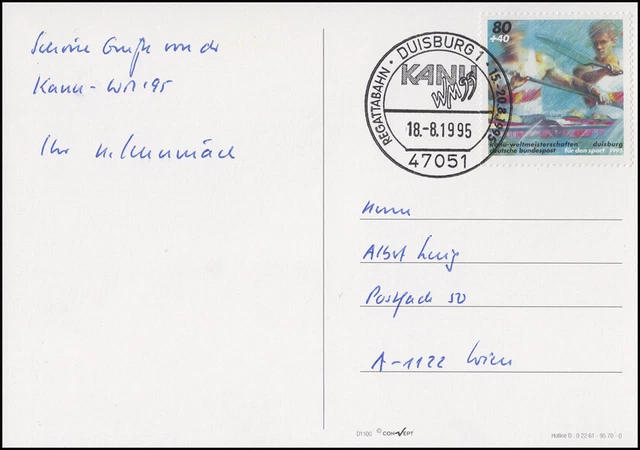 Schöne Grüße von der
Kanu-WM '95
Ihr
REGATTABAHN · DUISBURG 1 · 15.-20.8.1995
KANU
WM 95
18.-8.1995
47051
80
+40
kanu-weltmeisterschaften duisburg
deutsche bundespost für den sport 1995
Herrn
Albert
Postfach 50
A-1122 Wien
D1100 © CONCEPT
Hotline D : 0 22 61 - 95 70 - 0